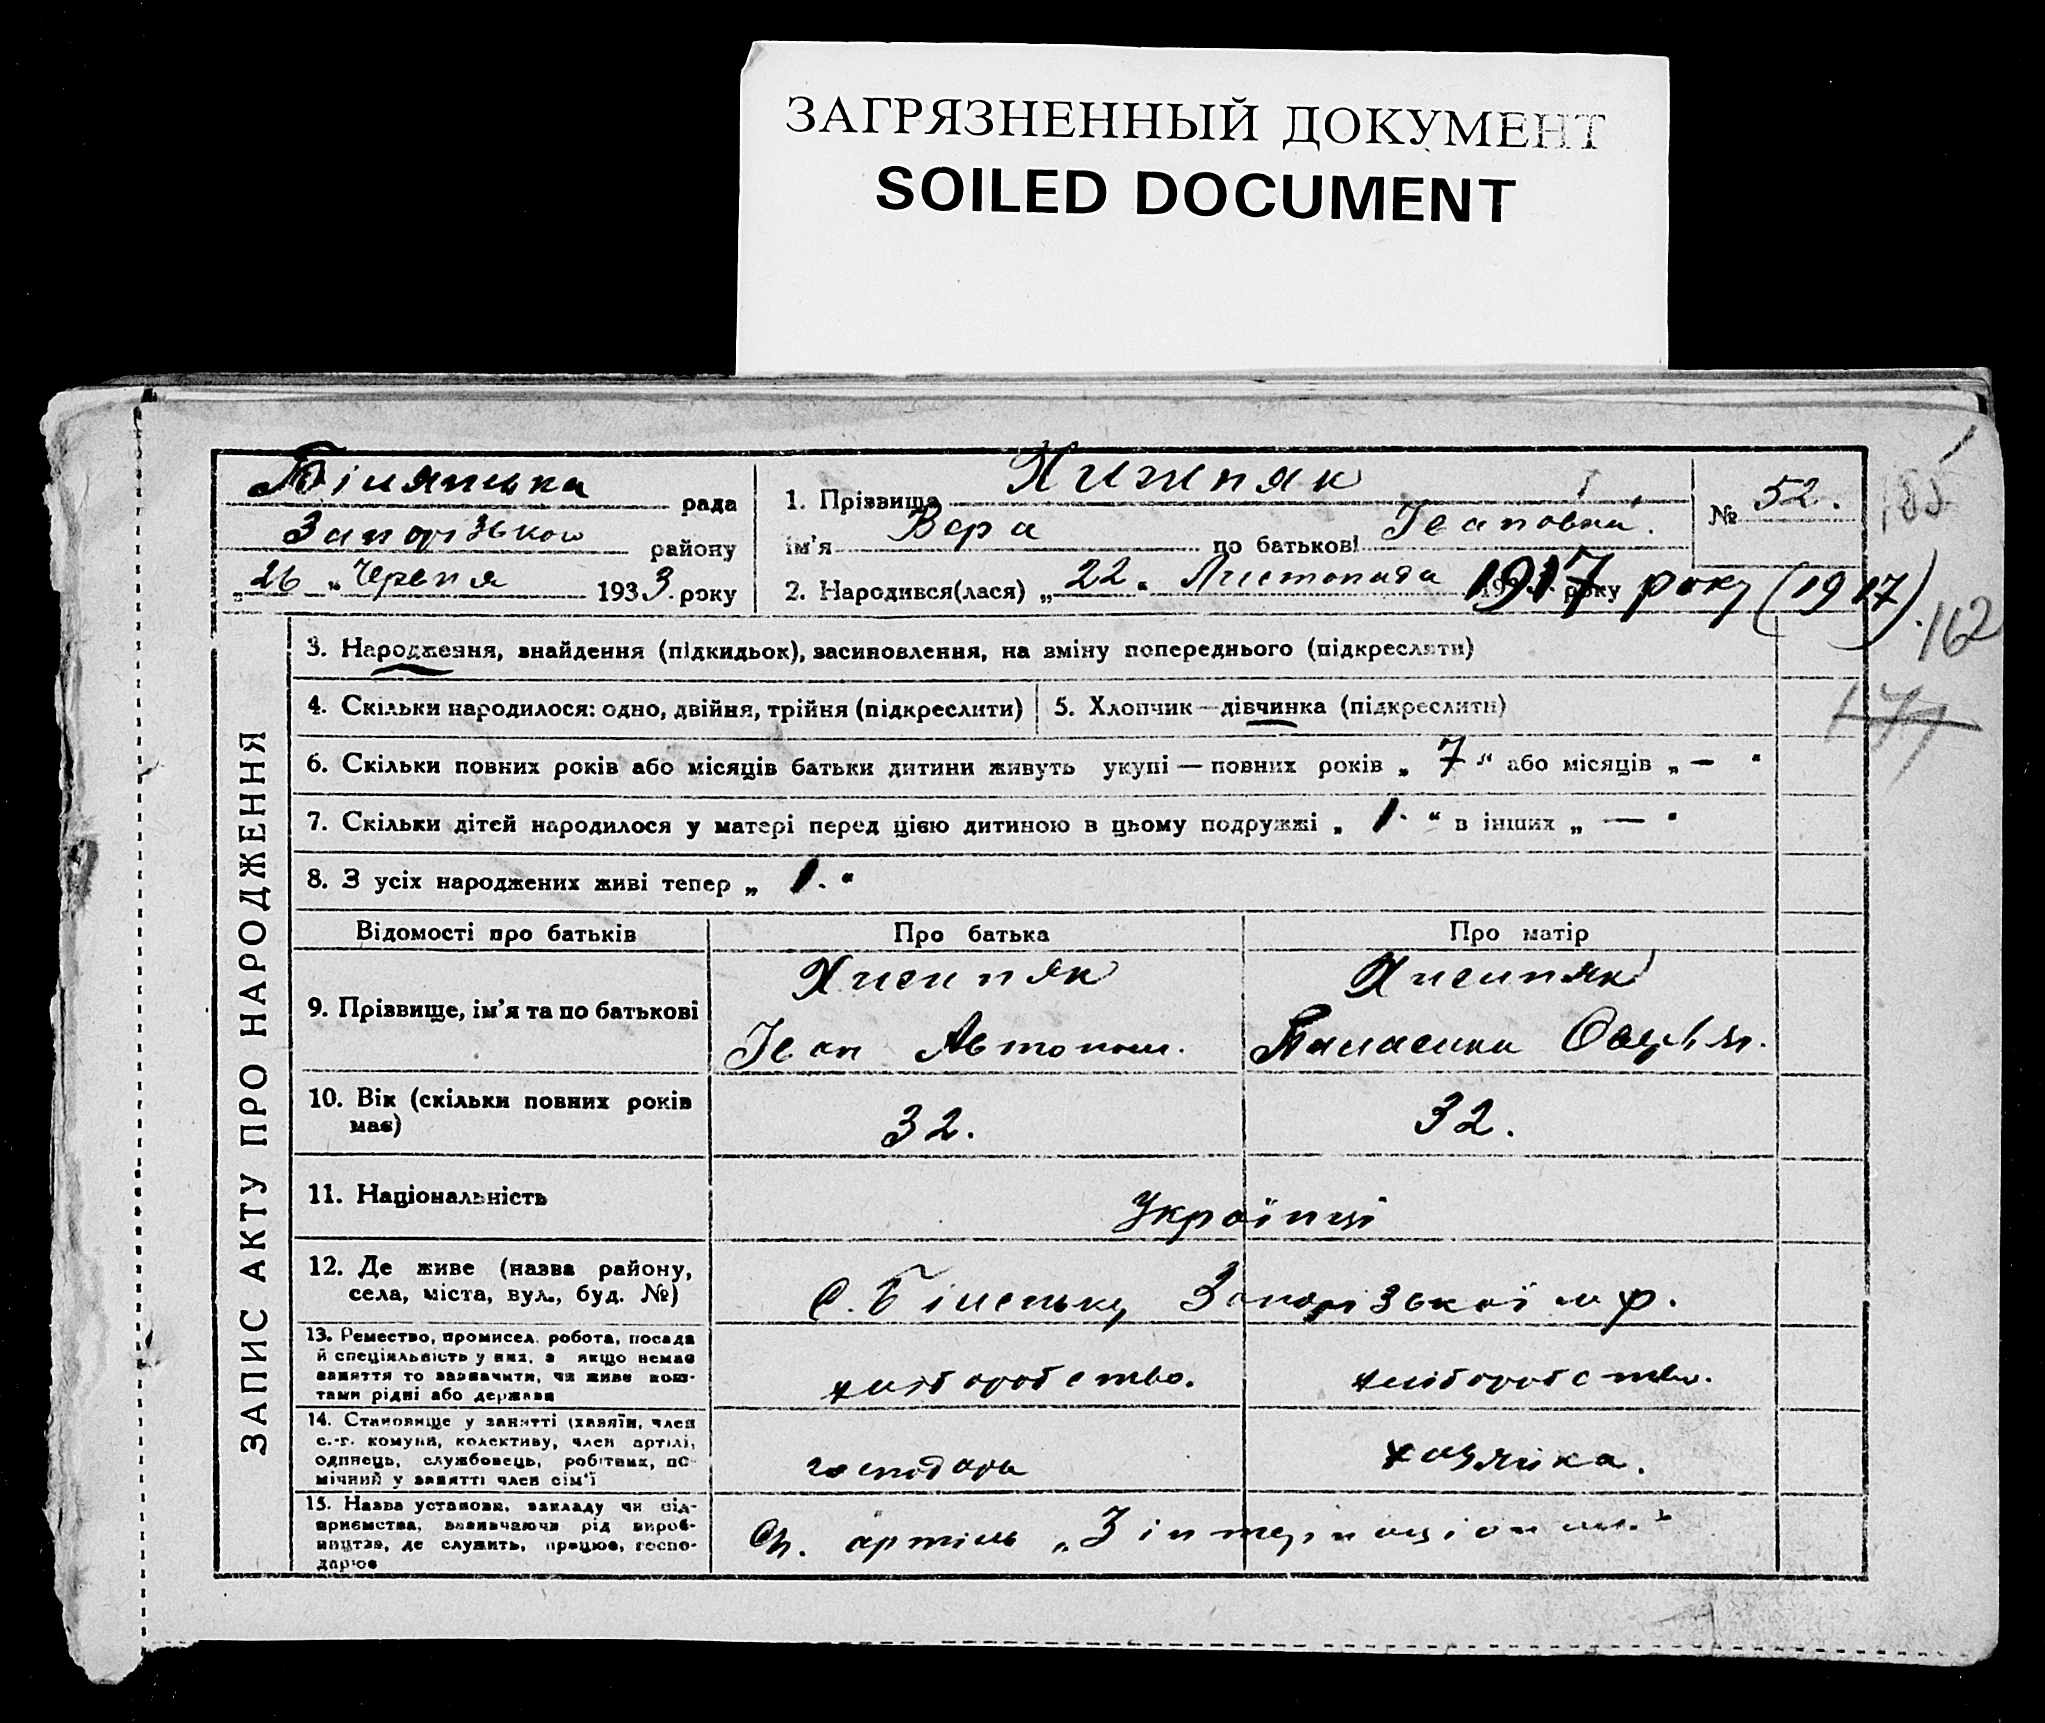 ЗАГРЯЗНЕННЫЙ ДОКУМЕНТ
SOILED DOCUMENT
рада
Запорізького району
„26" Червня 1933 року
1. Прізвище Хижняк
ім'я Вера по батькові Івановна.
№ 52.
185
2. Народився(лася) „22" Листопада 1917 року (1917).
162
177
ЗАПИС АКТУ ПРО НАРОДЖЕННЯ
3. Народження, знайдення (підкидьок), засиновлення, на зміну попереднього (підкреслити)
4. Скільки народилося: одно, двійня, трійня (підкреслити)
5. Хлопчик—дівчинка (підкреслити)
6. Скільки повних років або місяців батьки дитини живуть укупі — повних років „7" або місяців „—"
7. Скільки дітей народилося у матері перед цією дитиною в цьому подружжі „1." в інших „—"
8. З усіх народжених живі тепер „1."
Відомості про батьків
Про батька
Про матір
9. Прізвище, ім'я та по батькові
Хижняк
Іван Автоном.
Хижняк
10. Вік (скільки повних років
має)
32.
32.
11. Національність
Українці
12. Де живе (назва району,
села, міста, вул., буд. №)
с. Біленьке, Запорізького р.
13. Ремество, промисел, робота, посада
й спеціяльність у них, а якщо немає
заняття то зазначити, чи живе кош-
тами рідні або держави
хліборобство.
хліборобство.
14. Становище у занятті (хазяїн, член
с.-г. комуни, колективу, член артілі,
одинець, службовець, робітник, по-
мічний у занятті член сім'ї
господарь
хозяйка.
15. Назва установи, закладу чи під-
приємства, визначаючи рід вироб-
ництва, де служить, працює, госпо-
дарює
артіль „3 інтернаціонал."